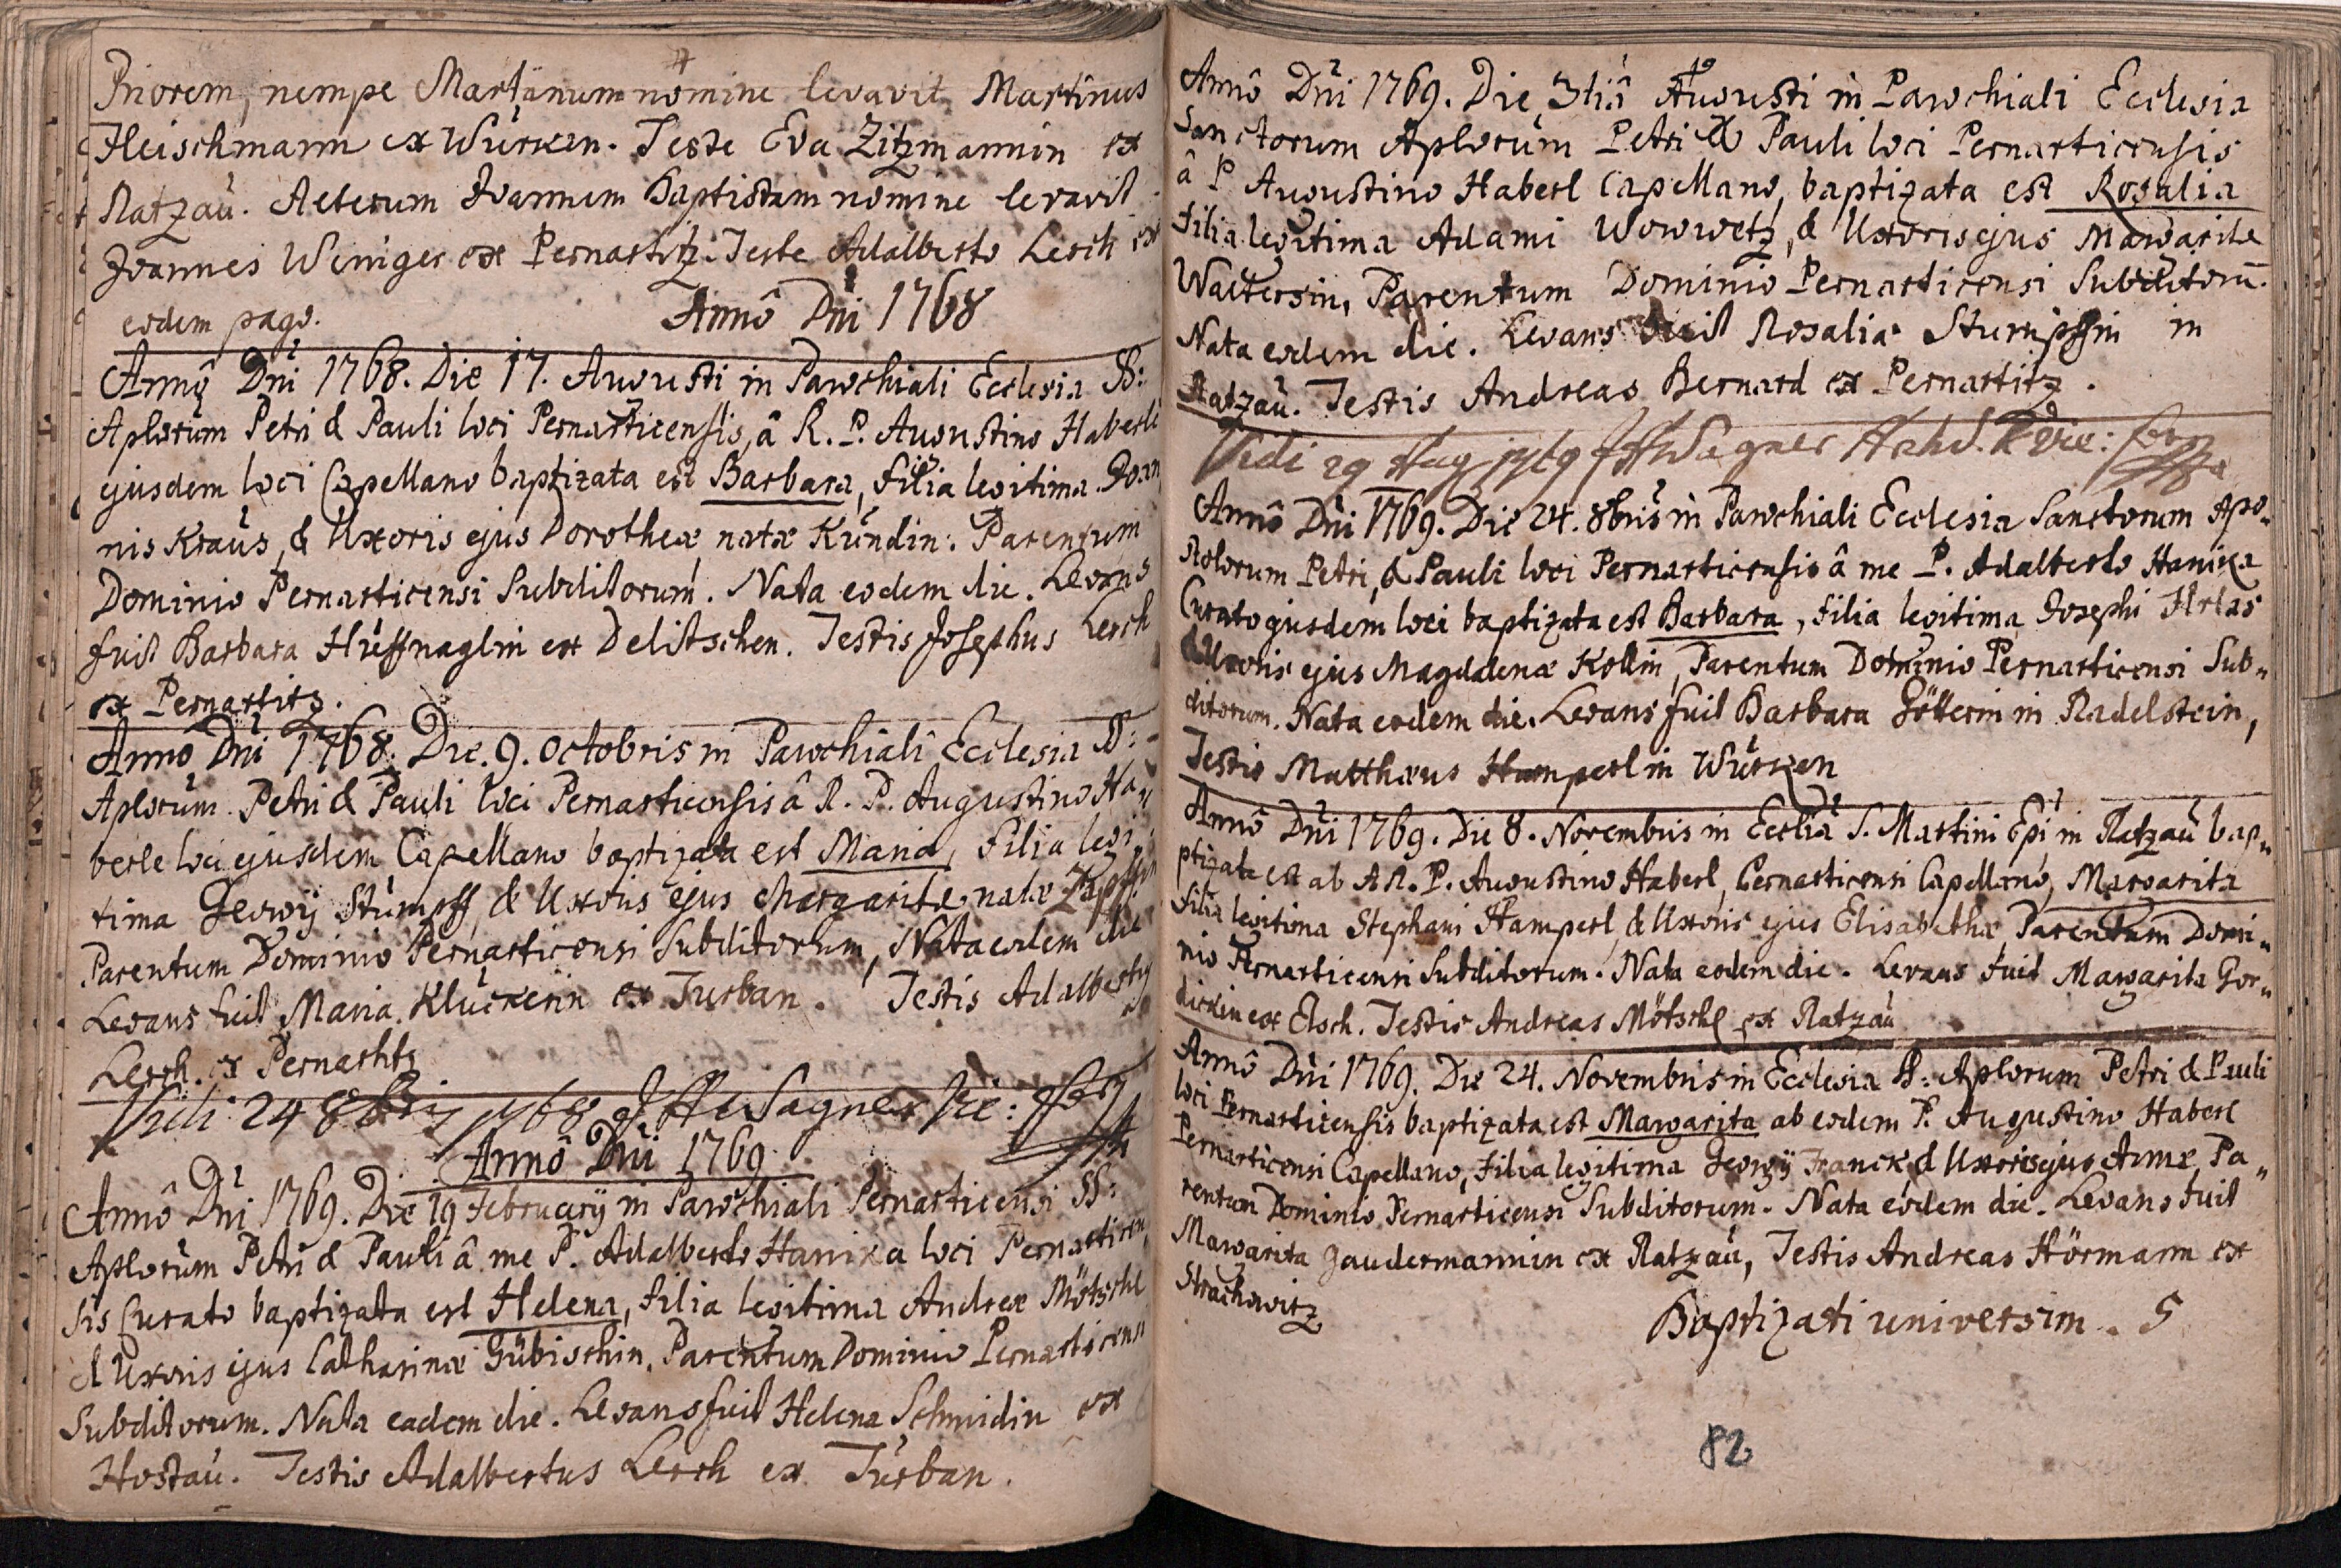 Priorem, nempe Martinum nomine levavit Martinus
Fleischmann ex Würken. Teste Eva Zitzmannin ex
Ratzaŭ. Alterum Joannem Baptistam nomine levavit
Joannes Weniger ex Pernartitz. Teste Adalberto Lerch ex
eodem pago.
Annô Dni 1768
Annô Dni 1768. Die 17. Augusti in Parochiali Ecclesia SS:
Aplorum Petri & Pauli loci Pernarticensis, â R. P. Augustino Haberle
ejusdem loci Capellano baptizata est Barbara, filia legitima Joan
nis Kraŭs, & Uxoris ejus Dorotheæ natæ Kŭndin. Parentum
Dominio Pernarticensi Subditorum. Nata eodem die. Levans
fuit Barbara Hŭffnaglin ex Delitschen. Testis Josephus Lerch
ex Pernartitz.
Annô Dni 1768. Die. 9. Octobris in Parochiali Ecclesia SS:
Aplorum Petri & Pauli loci Pernarticensis â R. P. Augustino Ha„
berle loci ejusdem Capellano baptizata est Maria, Filia legi
tima Georgij Stŭmpff, & Uxoris ejus Margaritæ natæ
Parentum Dominio Pernarticensi Subditorum, Nata eodem die
Levans fuit Maria Klŭckerin ex Turban. Testis Adalbertus
Lerch ex Pernartitz
Vidi 24 8bris 1768 Wagner Vic: for
Annô Dni 1769
Annô Dni 1769. Die 19 Februarij in Parochiali Pernarticensi SS:
Aplorum Petri & Pauli â me P. Adalberto Hanika loci Pernarticen„
sis Curato baptizata est Helena, filia legitima Andreæ Mötschl
& Uxoris ejus Catharinæ Gübischin, Parentum Dominio Pernarticensi
Subditorum. Nata eadem die. Levans fuit Helena Schmidin ex
Hostaŭ. Testis Adalbertus Lerch ex Tŭrban.
Annô Dni 1769. Die 3tiâ Augusti in Parochiali Ecclesia
Sanctorum Aplorum Petri & Pauli loci Pernarticensis
â P Augustino Haberl Capellano, baptizata est Rosalia
Filia legitima Adami Worwetz, & Uxoris ejus Margaritæ
Waltersin, Parentum Dominio Pernarticensi Subditorū.
Nata eodem die. Levans fuit Rosalia Stumpffin in
Ratzaŭ. Testis Andreas Bernard ex Pernartitz.
Vidi 29 Aug 1769 Wagner Vic: for
Annô Dni 1769. Die 24. 8bris in Parochiali Ecclesia Sanctorum Apo„
stolorum Petri, & Pauli loci Pernarticensis â me P. Adalberto Hanika
Curato ejusdem loci baptizata est Barbara, filia legitima Josephi
& Uxoris ejus Magdalenæ Kollin, Parentum Dominio Pernarticensi Sub„
ditorum. Nata eodem die. Levans fuit Barbara Götterin in Radelstein,
Testis Matthæus Hamperl in Wŭrken
Annô Dni 1769. Die 8. Novembris in Ecclia S. Martini Epi in Ratzaŭ bap„
ptizata est ab A R. P. Augustino Haberl, Pernarticensi Capellano, Margarita
Filia legitima Stephani Hamperl, & Uxoris ejus Elisabethæ, Parentum Domi„
nio Pernarticensi Subditorum. Nata eodem die. Levans fuit Margarita Gor„
dickin ex Elsch. Testis Andreas Mötschl ex Ratzaŭ
Annô Dni 1769. Die 24. Novembris in Ecclesia SS: Aplorum Petri & Pauli
loci Pernarticensis baptizata est Margarita ab eodem P. Augustino Haberl
Pernarticensi Capellano, Filia legitima Georgij Franck, & Uxoris ejus Annæ, Pa„
rentum Dominio Pernarticensi Subditorum. Nata eodem die. Levans fuit
Margarita Zaudermannin ex Ratzaŭ, Testis Andreas Hörmann ex
Strachowitz
Baptizati universim. 5
82